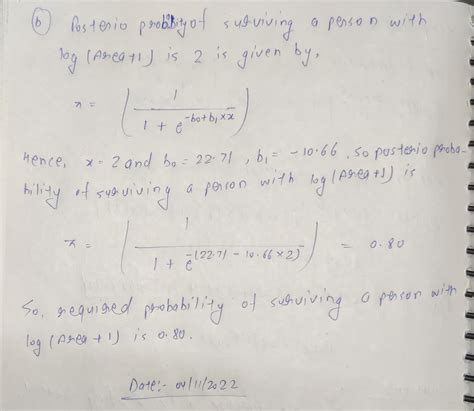 (b) Posterio probbityof surviving a person with
log (Area+1) is 2 is given by,
π = ( 1 / 1 + e^-b0+b1×x )
Hence, x = 2 and b0 = 22.71 , b1 = -10.66 , so posterio proba-
bility of surviving a person with log (Area+1) is
π = ( 1 / 1 + e^-(22.71 - 10.66×2) ) = 0.80
So, required probability of surviving a person with
log (Area+1) is 0.80.
Date:- 04/11/2022